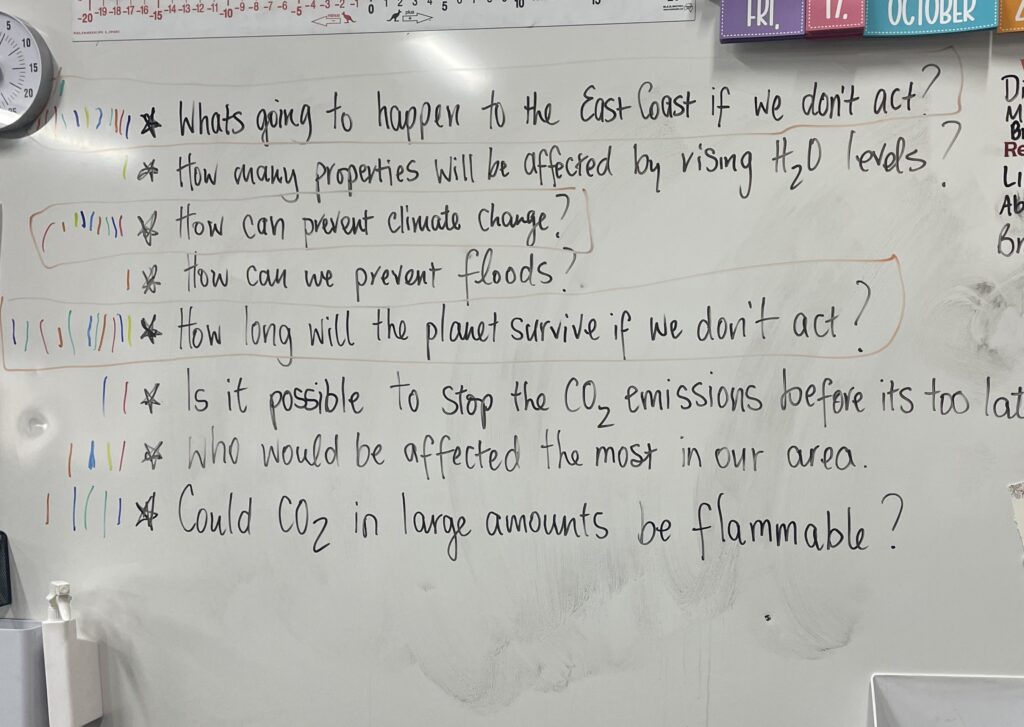 -20 -19 -18 -17 -16 -15 -14 -13 -12 -11 -10 -9 -8 -7 -6 -5 -4 -3 -2 -1 0 1 2 3 4 5
FRI. 17. OCTOBER
5
10
15
20
Whats going to happen to the East Coast if we don't act?
How many properties will be affected by rising H₂O levels?
How can prevent climate change?
How can we prevent floods?
How long will the planet survive if we don't act?
Is it possible to stop the CO₂ emissions before its too lat
Who would be affected the most in our area.
Could CO₂ in large amounts be flammable?
Di
M
B
Re
Li
Ab
Br